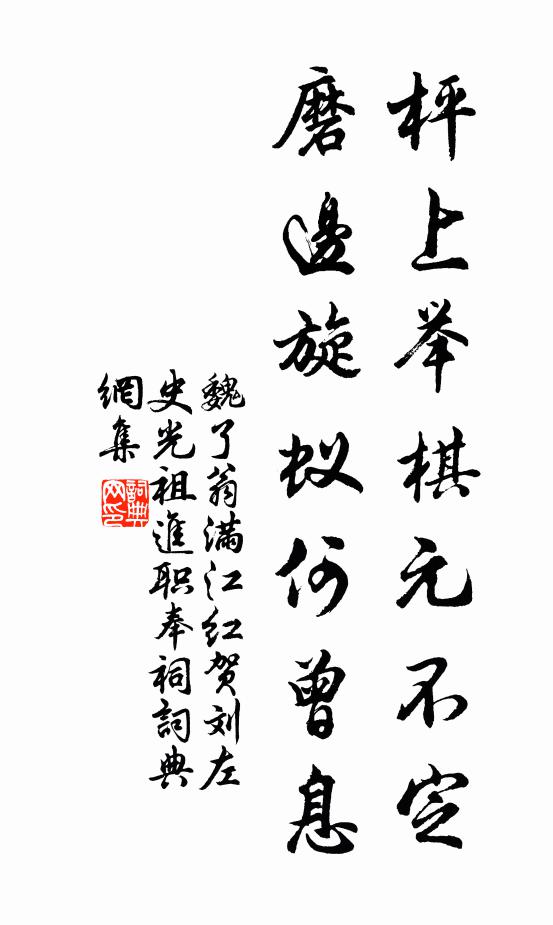 枰上举棋元不定
磨邊旋蚁何曾息
魏了翁满江红贺刘左
史光祖進职奉祠詞典
網集
詞典
网印